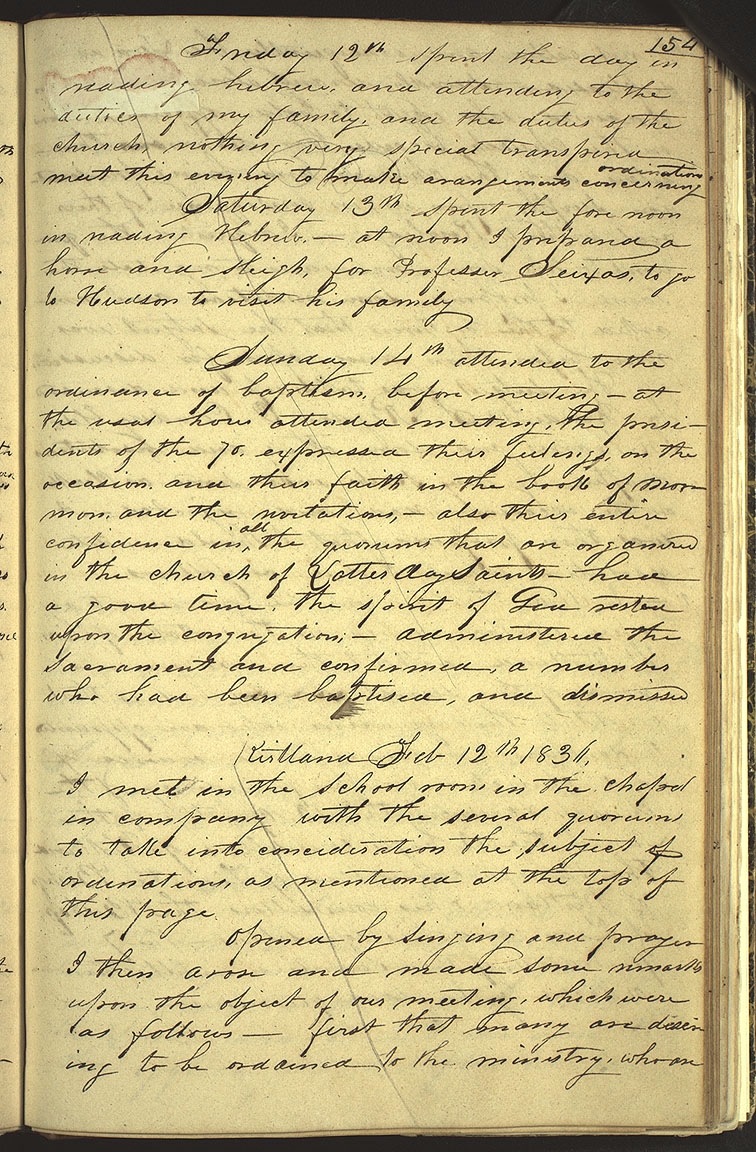 154
Friday 12th spent the day in
reading hebrew, and attending to the
duties of my family, and the duties of the
church, nothing very special transpired
meet this evening to make arangements concerning ordinations
Saturday 13th spent the fore noon
in reading Hebrew.— at noon I prepared a
horse and sleigh, for Professor Seixas, to go
to Hudson to visit his family
Sunday 14th attended to the
ordinance of baptism, before meeting— at
the usal hour attended meeting, the presi-
dents of the 70. expressed their feelings, on the
occasion, and their faith in the book of Mor-
mon, and the revelations,— also their entire
confidence in, all the quorums that are organized
in the church of Latter day Saints— had
a good time, the spirit of God rested
upon the congregation;— administered the
sacrament and confirmed, a number
who had been baptised, and dismissed
Kirtland Feb 12th 1836,
I met in the School room in the chapel
in company with the several quorums
to take into concideration the subject of
ordinations, as mentioned at the top of
this page.
opened by singing and prayer
I then arose and made some remarks
upon the object of our meeting, which were
as follows— first that many are desir
ing to be ordained to the ministry, who are